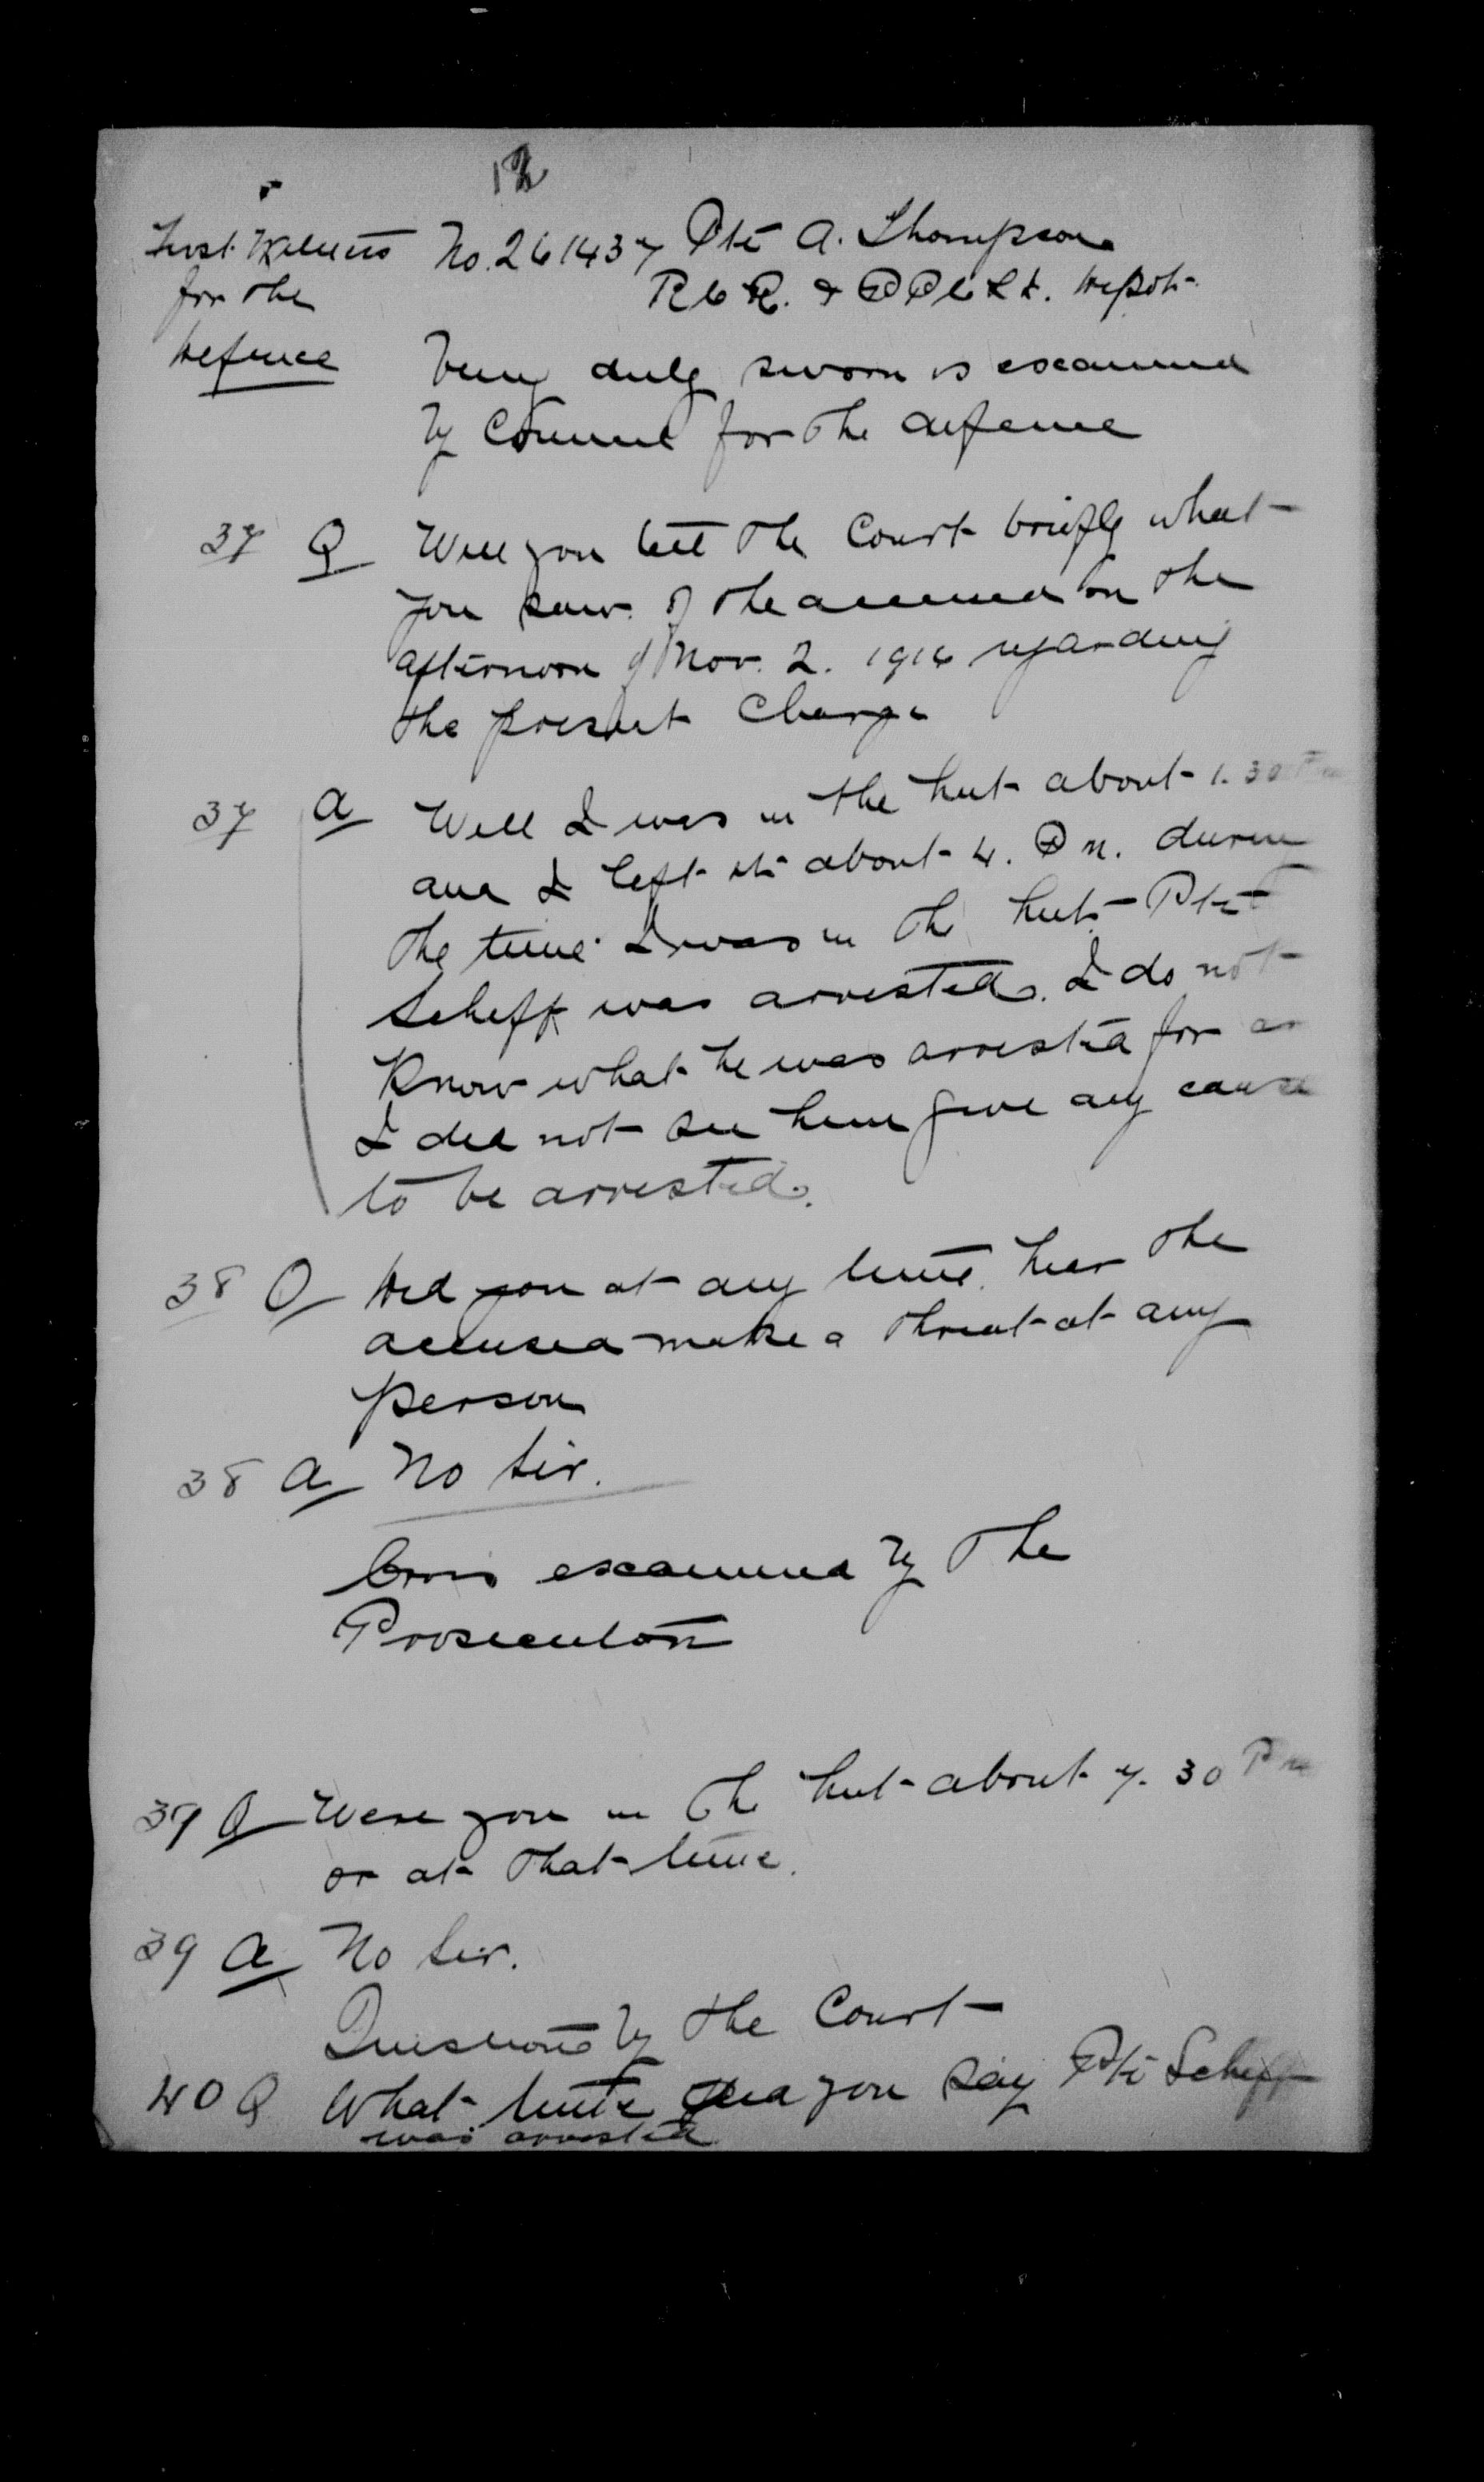 12
First Witness No. 261437 Pte A. Thompson
for the R C R. & P P C L I. Depot
Defence being duly sworn is examined
by Counsel for the defence
37 Q Will you tell the Court briefly what
you saw of the accused on the
afternoon of Nov. 2. 1916 regarding
the present charge
37 A Well I was in the hut about 1.30 Pm
and I left it about 4. P m. during
the time I was in the hut Pte
Scheff was arrested. I do not
know what he was arrested for as
I did not see him give any cause
to be arrested.
38 Q Did you at any time hear the
accused make a threat at any
person
38 A No Sir.
Cross examined by the
Prosecution
39 Q Were you in the hut about 7.30 Pm
or at that time.
39 A No Sir.
Questioned by the Court
40 Q What time did you say Pte Scheff
was arrested